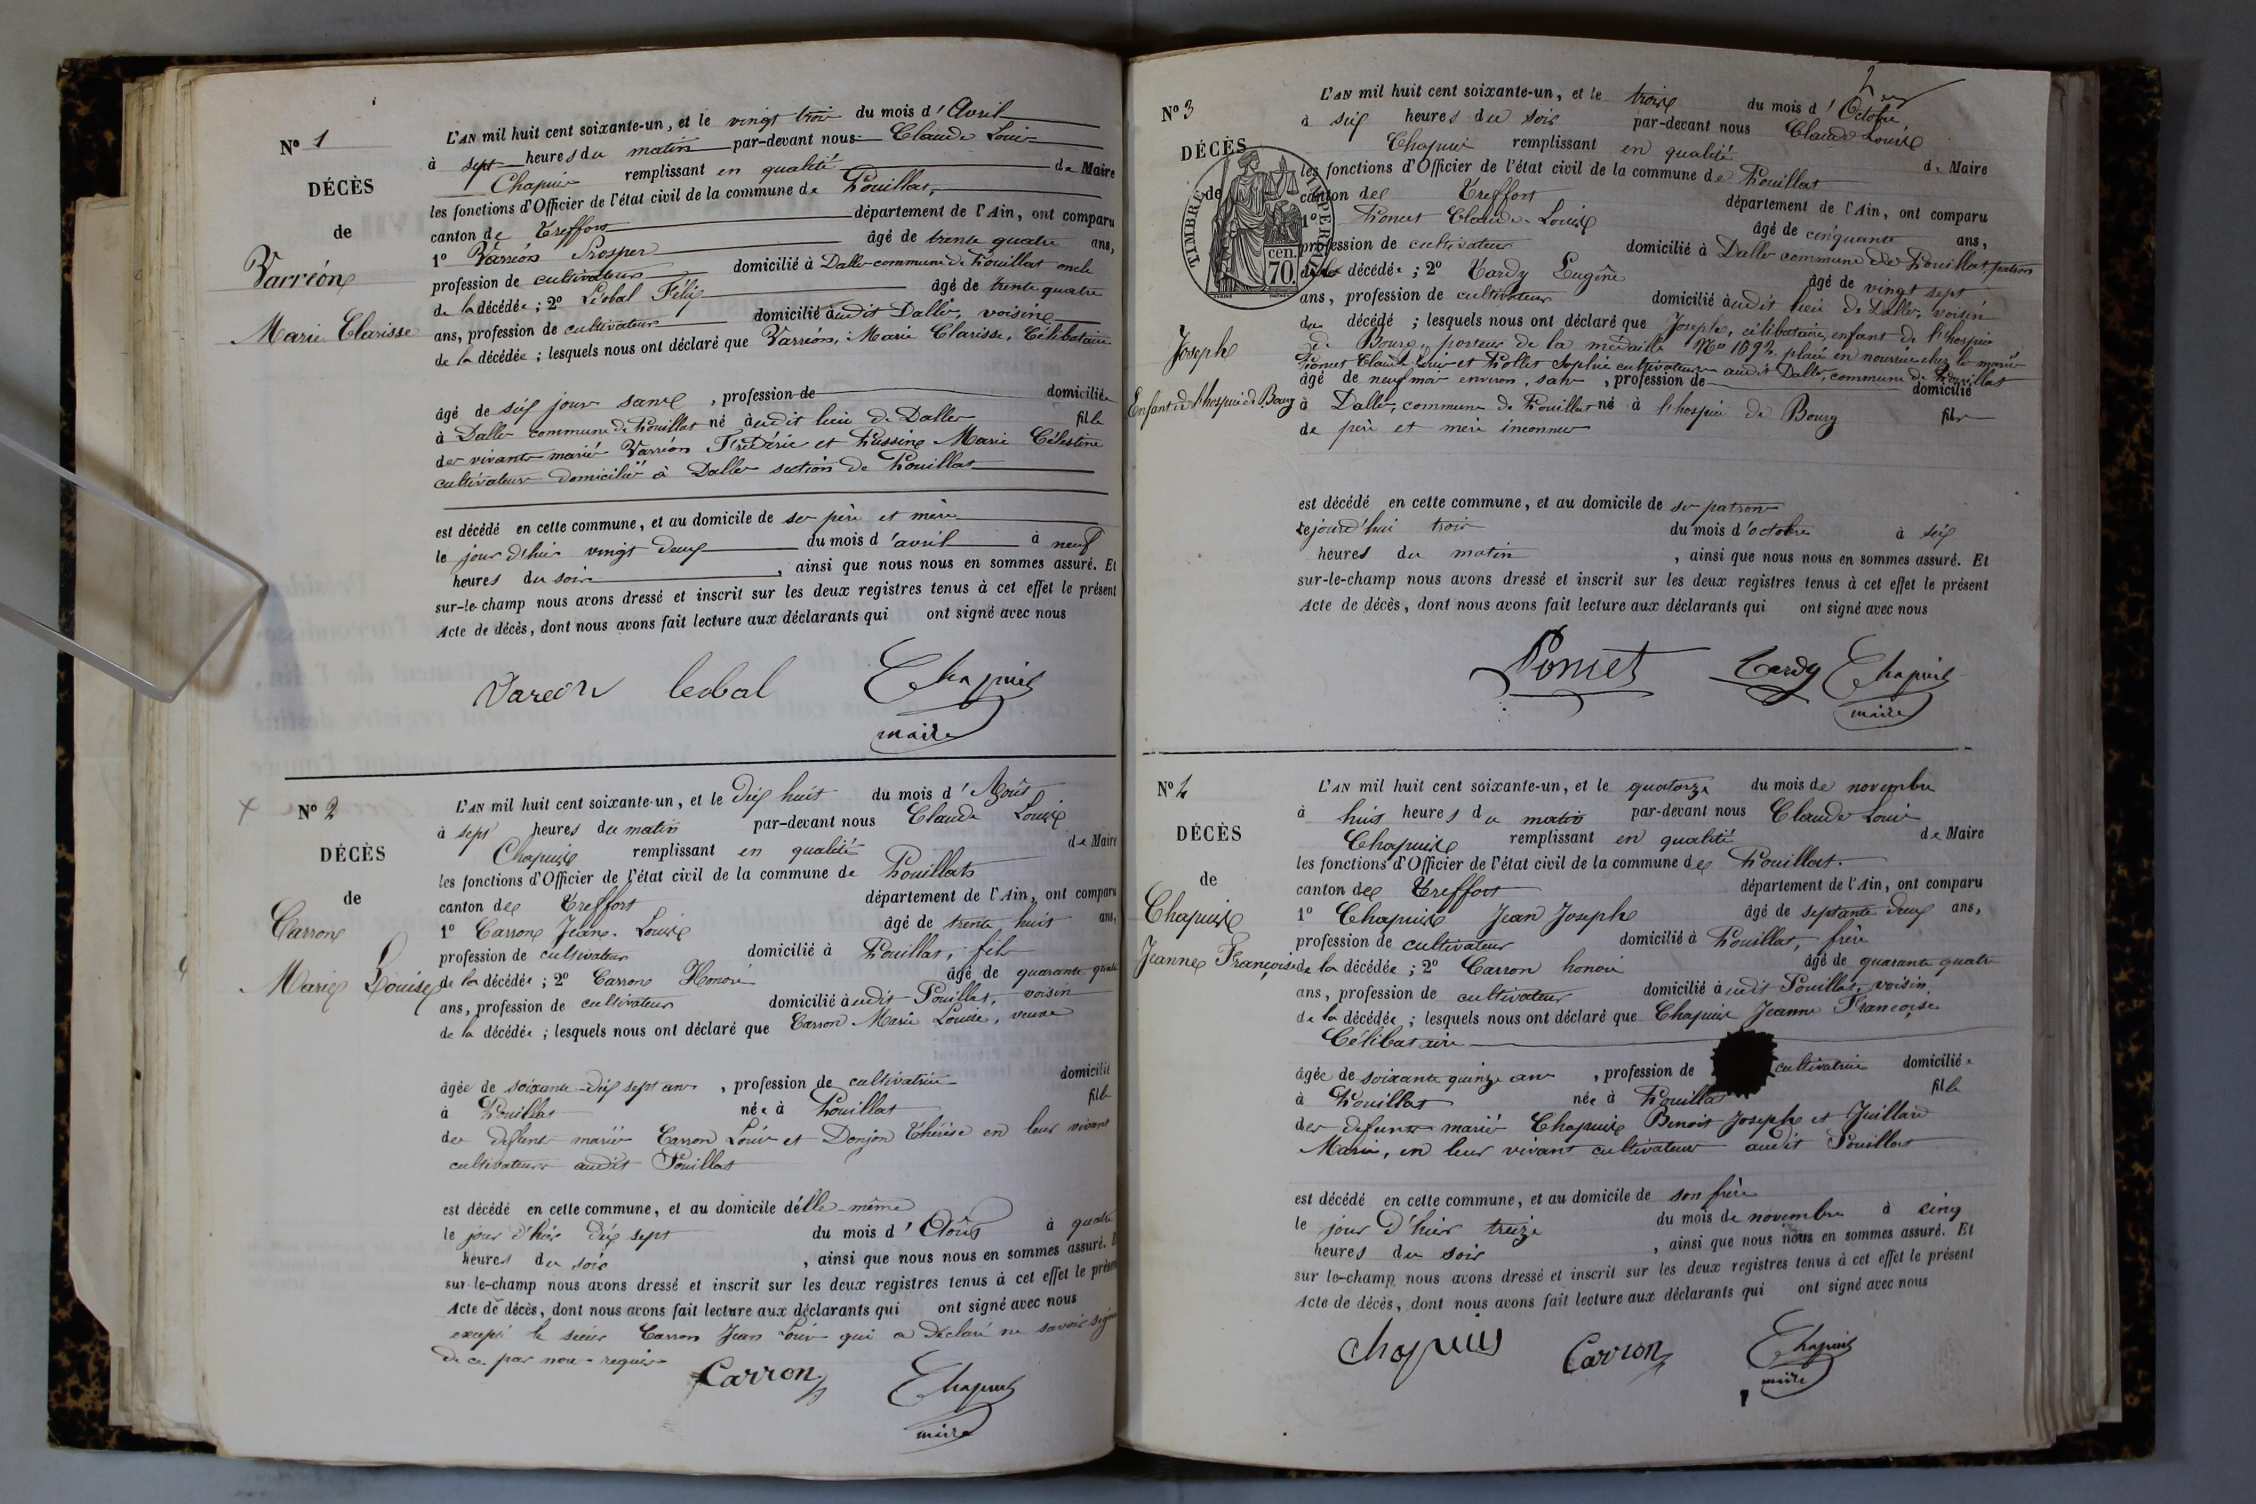 N° 1
DÉCÈS
de
Varréon
Marie Clarisse
L'AN mil huit cent soixante-un, et le vingt trois du mois d'Avril
à sept heures du matin par-devant nous Claude Louis
Chapuis remplissant en qualité de Maire
les fonctions d'Officier de l'état civil de la commune de Pouillat,
canton de Treffort département de l'Ain, ont comparu
1° Varréon Prosper âgé de trente quatre ans,
profession de cultivateur domicilié à Dalles commune de Pouillat oncle
de la décédée ; 2° Léobal Félix âgé de trente quatre
ans, profession de cultivateur domicilié audit Dalles, voisin
de la décédée ; lesquels nous ont déclaré que Varréon, Marie Clarisse, Célibataire
âgé de six jours sans , profession de domiciliée
à Dalles commune de Pouillat né audit lieu de Dalles fille
des vivants mariés Varréon Frédéric et Pussin Marie Célestine
cultivateurs domiciliés à Dalles section de Pouillat
est décédé en cette commune, et au domicile de ses père et mère
le jour d'hier vingt deux du mois d'avril à neuf
heures du soir , ainsi que nous nous en sommes assuré. Et
sur-le-champ nous avons dressé et inscrit sur les deux registres tenus à cet effet le présent
Acte de décès, dont nous avons fait lecture aux déclarants qui ont signé avec nous
Vareon leobal Chapuis
maire
N° 2
DÉCÈS
de
Carron
Marie Louise
L'AN mil huit cent soixante-un, et le dix huit du mois d'Août
à sept heures du matin par-devant nous Claude Louis
Chapuis remplissant en qualité de Maire
les fonctions d'Officier de l'état civil de la commune de Pouillat
canton de Treffort département de l'Ain, ont comparu
1° Carron Jean-Louis âgé de trente huit ans,
profession de cultivateur domicilié à Pouillat, fils
de la décédée ; 2° Carron Honoré âgé de quarante quatre
ans, profession de cultivateur domicilié audit Pouillat, voisin
de la décédée ; lesquels nous ont déclaré que Carron Marie Louise, veuve
âgée de soixante-dix sept ans , profession de cultivatrice domicilié
à Pouillat née à Pouillat fille
des défunts mariés Carron Louis et Donjon Thérèse en leur vivant
cultivateurs audit Pouillat
est décédé en cette commune, et au domicile d'elle-même
le jour d'hier dix sept du mois d'Août à quatre
heures du soir , ainsi que nous nous en sommes assuré. E
sur-le-champ nous avons dressé et inscrit sur les deux registres tenus à cet effet le présen
Acte de décès, dont nous avons fait lecture aux déclarants qui ont signé avec nous
excepté le sieur Carron Jean Louis qui a déclaré ne savoir signer
de ce par nous requis
Carron Chapuis
maire
N° 3
DÉCÈS
de
TIMBRE IMPERIAL
cen.
70.
Joseph
Enfant de l'hospice de Bourg
L'AN mil huit cent soixante-un, et le trois du mois d'Octobre
à six heures du soir par-devant nous Claude Louis
Chapuis remplissant en qualité de Maire
les fonctions d'Officier de l'état civil de la commune de Pouillat
canton de Treffort département de l'Ain, ont comparu
1° Poncet Claude-Louis âgé de cinquante ans,
profession de cultivateur domicilié à Dalles commune de Pouillat patron
du décédé ; 2° Tardy Eugène âgé de vingt sept
ans, profession de cultivateur domicilié audit lieu de Dalles, voisin
du décédé ; lesquels nous ont déclaré que Joseph, célibataire, enfant de l'hospice
de Bourg, porteur de la médaille N° 1692, placé en nourrice chez les mariés
Poncet Claude Louis et Pollet Sophie cultivateurs audit Dalles, commune de Pouillat
âgé de neuf mois environ, sans , profession de domicilié
à Dalles, commune de Pouillat né à l'hospice de Bourg fils
de père et mère inconnus
est décédé en cette commune, et au domicile de ses patrons
cejourd'hui trois du mois d'octobre à six
heures du matin , ainsi que nous nous en sommes assuré. Et
sur-le-champ nous avons dressé et inscrit sur les deux registres tenus à cet effet le présent
Acte de décès, dont nous avons fait lecture aux déclarants qui ont signé avec nous
Poncet Tardy Chapuis
maire
N° 4
DÉCÈS
de
Chapuis
Jeanne Françoise
L'AN mil huit cent soixante-un, et le quatorze du mois de novembre
à huit heures du matin par-devant nous Claude Louis
Chapuis remplissant en qualité de Maire
les fonctions d'Officier de l'état civil de la commune de Pouillat.
canton de Treffort département de l'Ain, ont comparu
1° Chapuis Jean Joseph âgé de septante deux ans,
profession de cultivateur domicilié à Pouillat, frère
de la décédée ; 2° Carron honoré âgé de quarante quatre
ans, profession de cultivateur domicilié audit Pouillat, voisin
de la décédée ; lesquels nous ont déclaré que Chapuis Jeanne Françoise
Célibataire
âgée de soixante quinze ans , profession de cultivatrice domiciliée
à Pouillat née à Pouillat fille
des défunts mariés Chapuis Benoit Joseph et Juillard
Marie, en leur vivant cultivateurs audit Pouillat
est décédé en cette commune, et au domicile de son frère
le jour d'hier treize du mois de novembre à cinq
heures du soir , ainsi que nous nous en sommes assuré. Et
sur le-champ nous avons dressé et inscrit sur les deux registres tenus à cet effet le présent
Acte de décès, dont nous avons fait lecture aux déclarants qui ont signé avec nous
Chapuis Carron Chapuis
maire